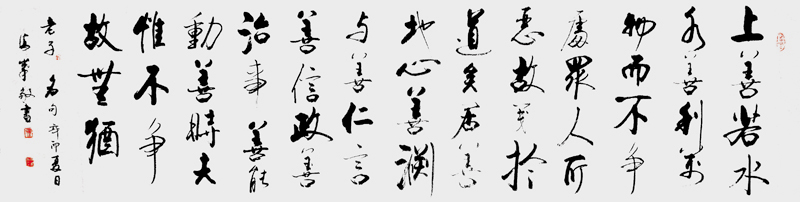 上善若水
水善利萬
物而不争
處眾人所
惡故幾於
道矣居善
地心善渊
与善仁言
善信政善
治事善能
動善時夫
惟不争
故無猶
老子名句辛卯夏日
書